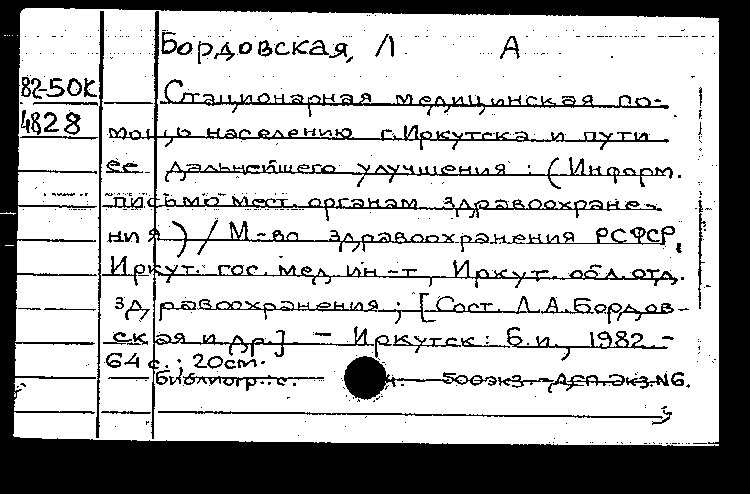 Бордовская, Л А
82-50К Стационарная медицинская по-
4828 мощь населению г. Иркутска и пути
ее дальнейшего улучшения : (Информ.
письмо мест. органам здравоохране-
ния) / М-во здравоохранения РСФСР,
Иркут. гос. мед. ин-т, Иркут. обл. отд.
здравоохранения ; [Сост. Л.А. Бордов-
ская и др.] - Иркутск : Б.и., 1982.-
64 с. ; 20 см.
Библиогр.: с. 500 экз. - Деп. экз. №6.